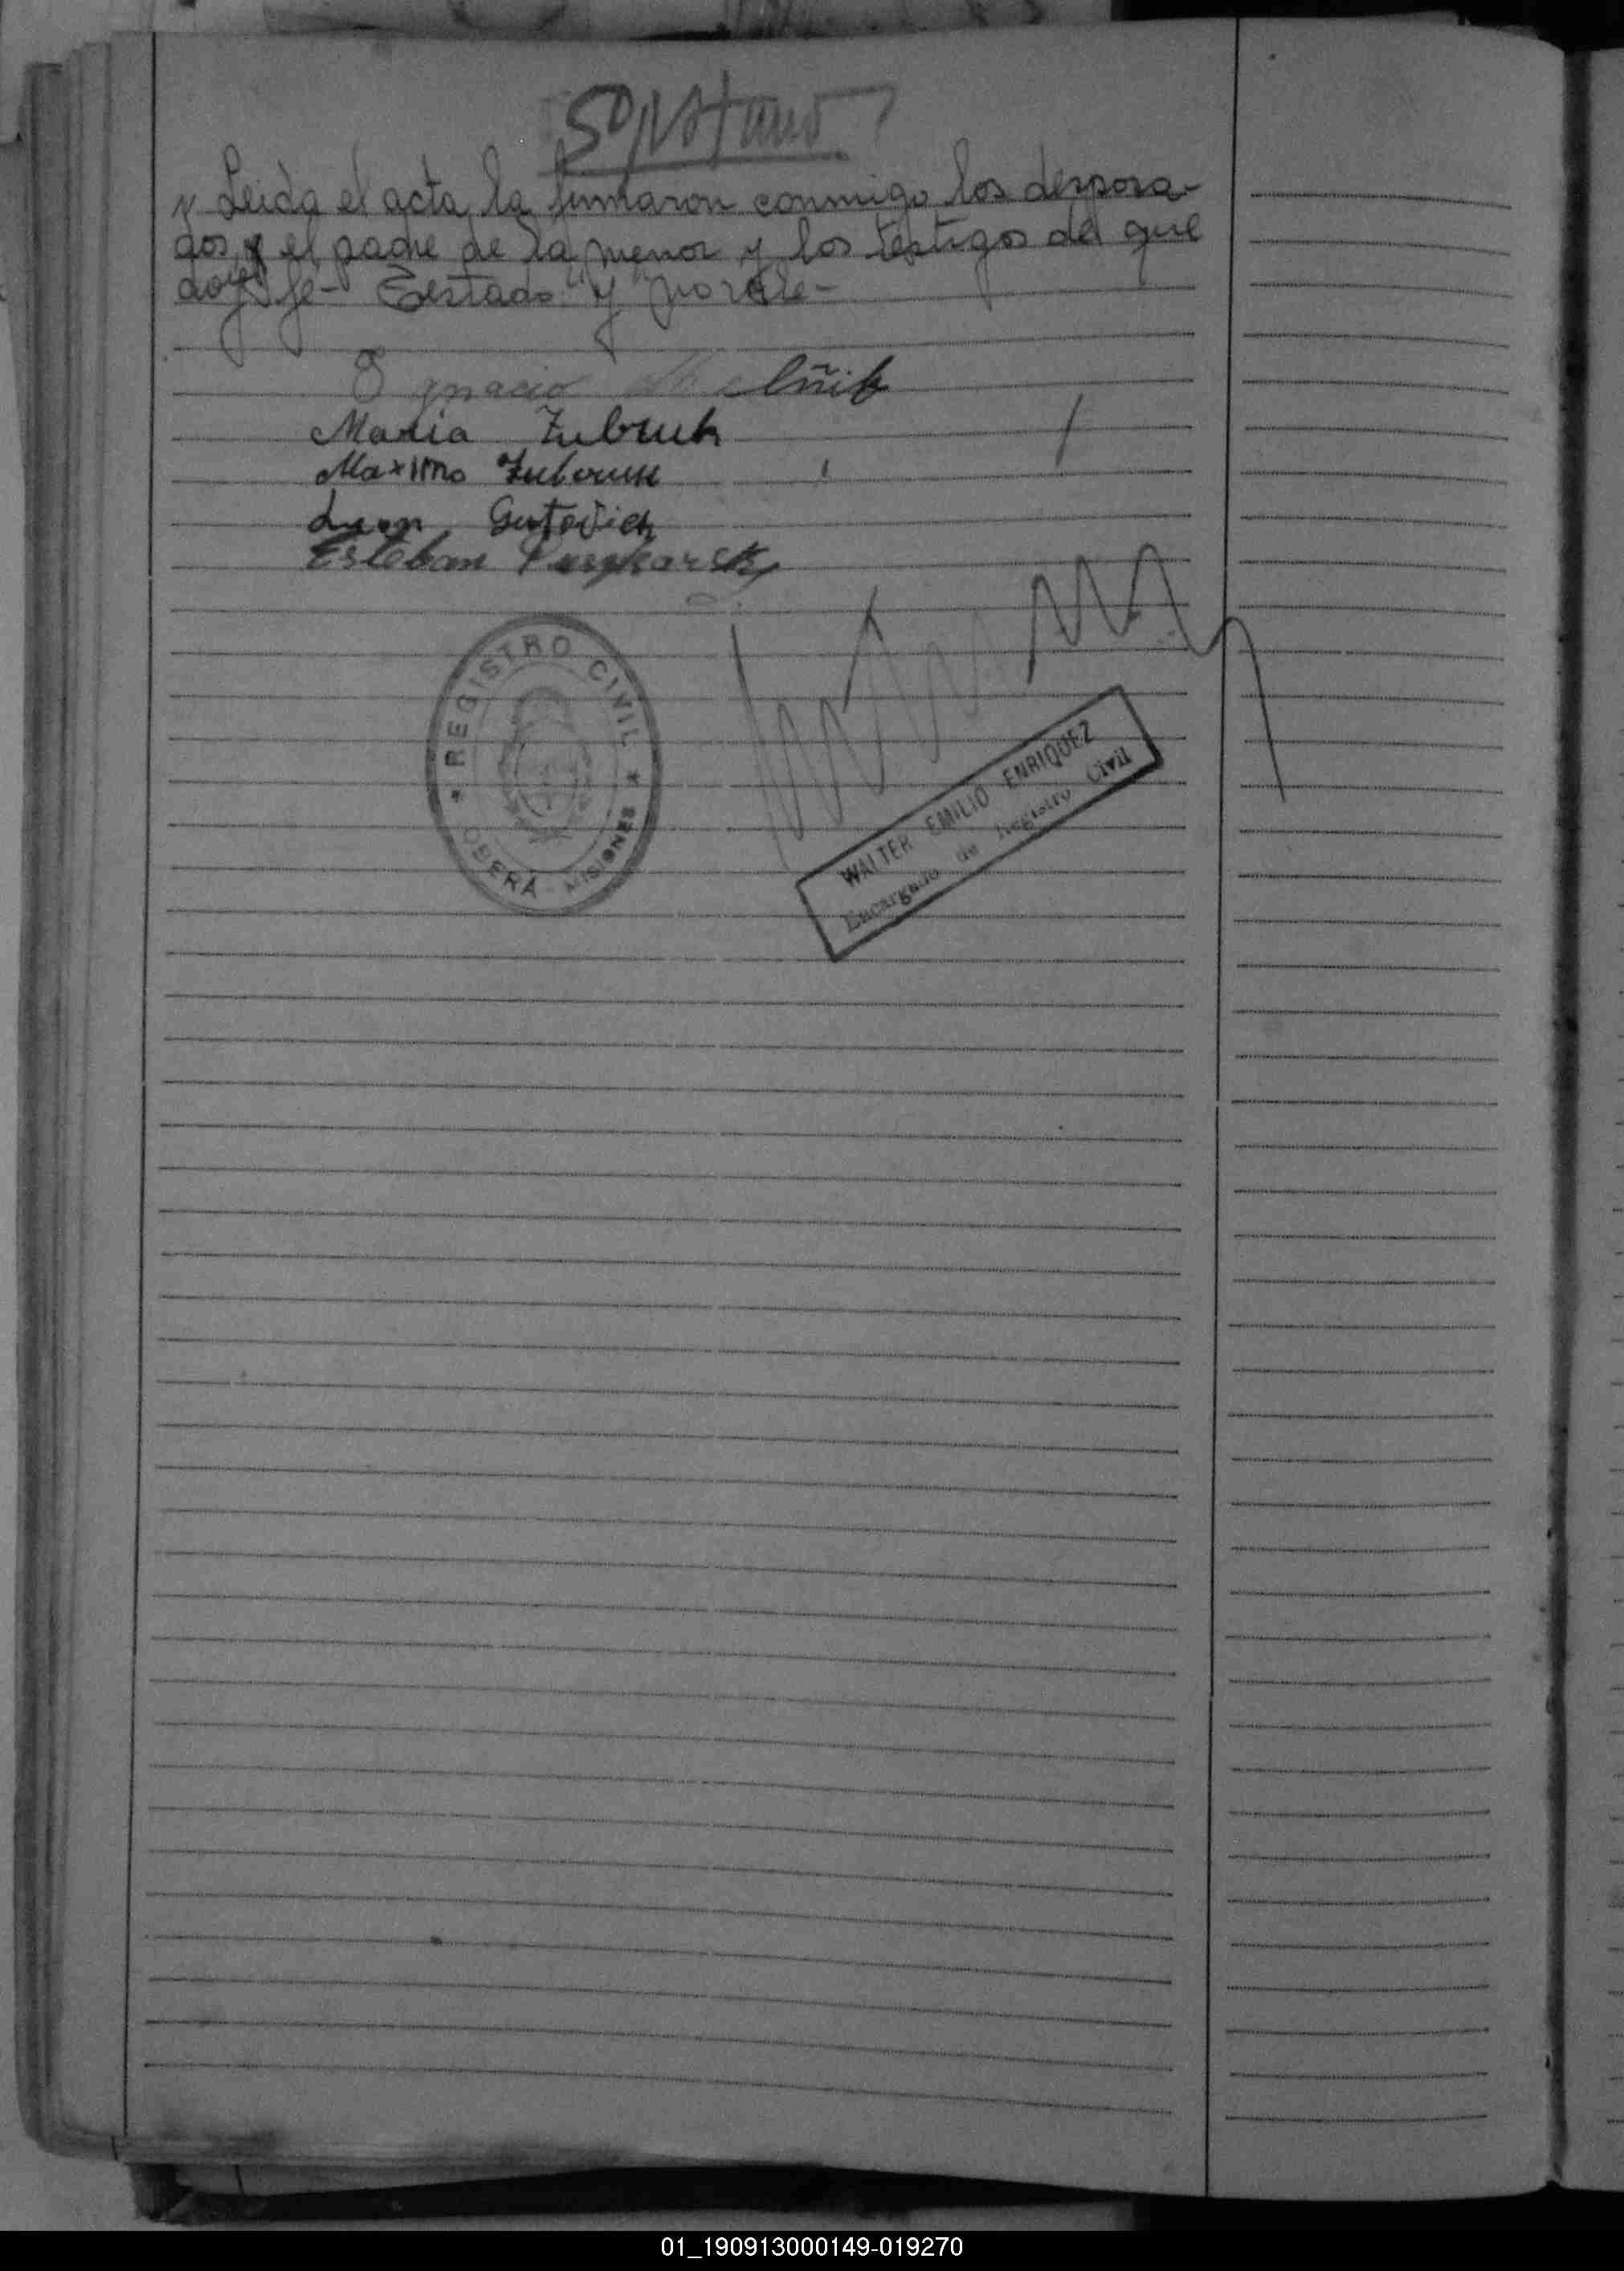 Leida el acta, la firmaron conmigo los desposa-
dos, y el padre de la menor y los testigos de que
doy fé- Testado "y" no vale-
Ignacio
Maria Zubruk
Maximo
Gutovich
Esteban
REGISTRO CIVIL
OBERÁ - MISIONES
WALTER EMILIO ENRIQUEZ
Encargado de Registro Civil
01_190913000149-019270